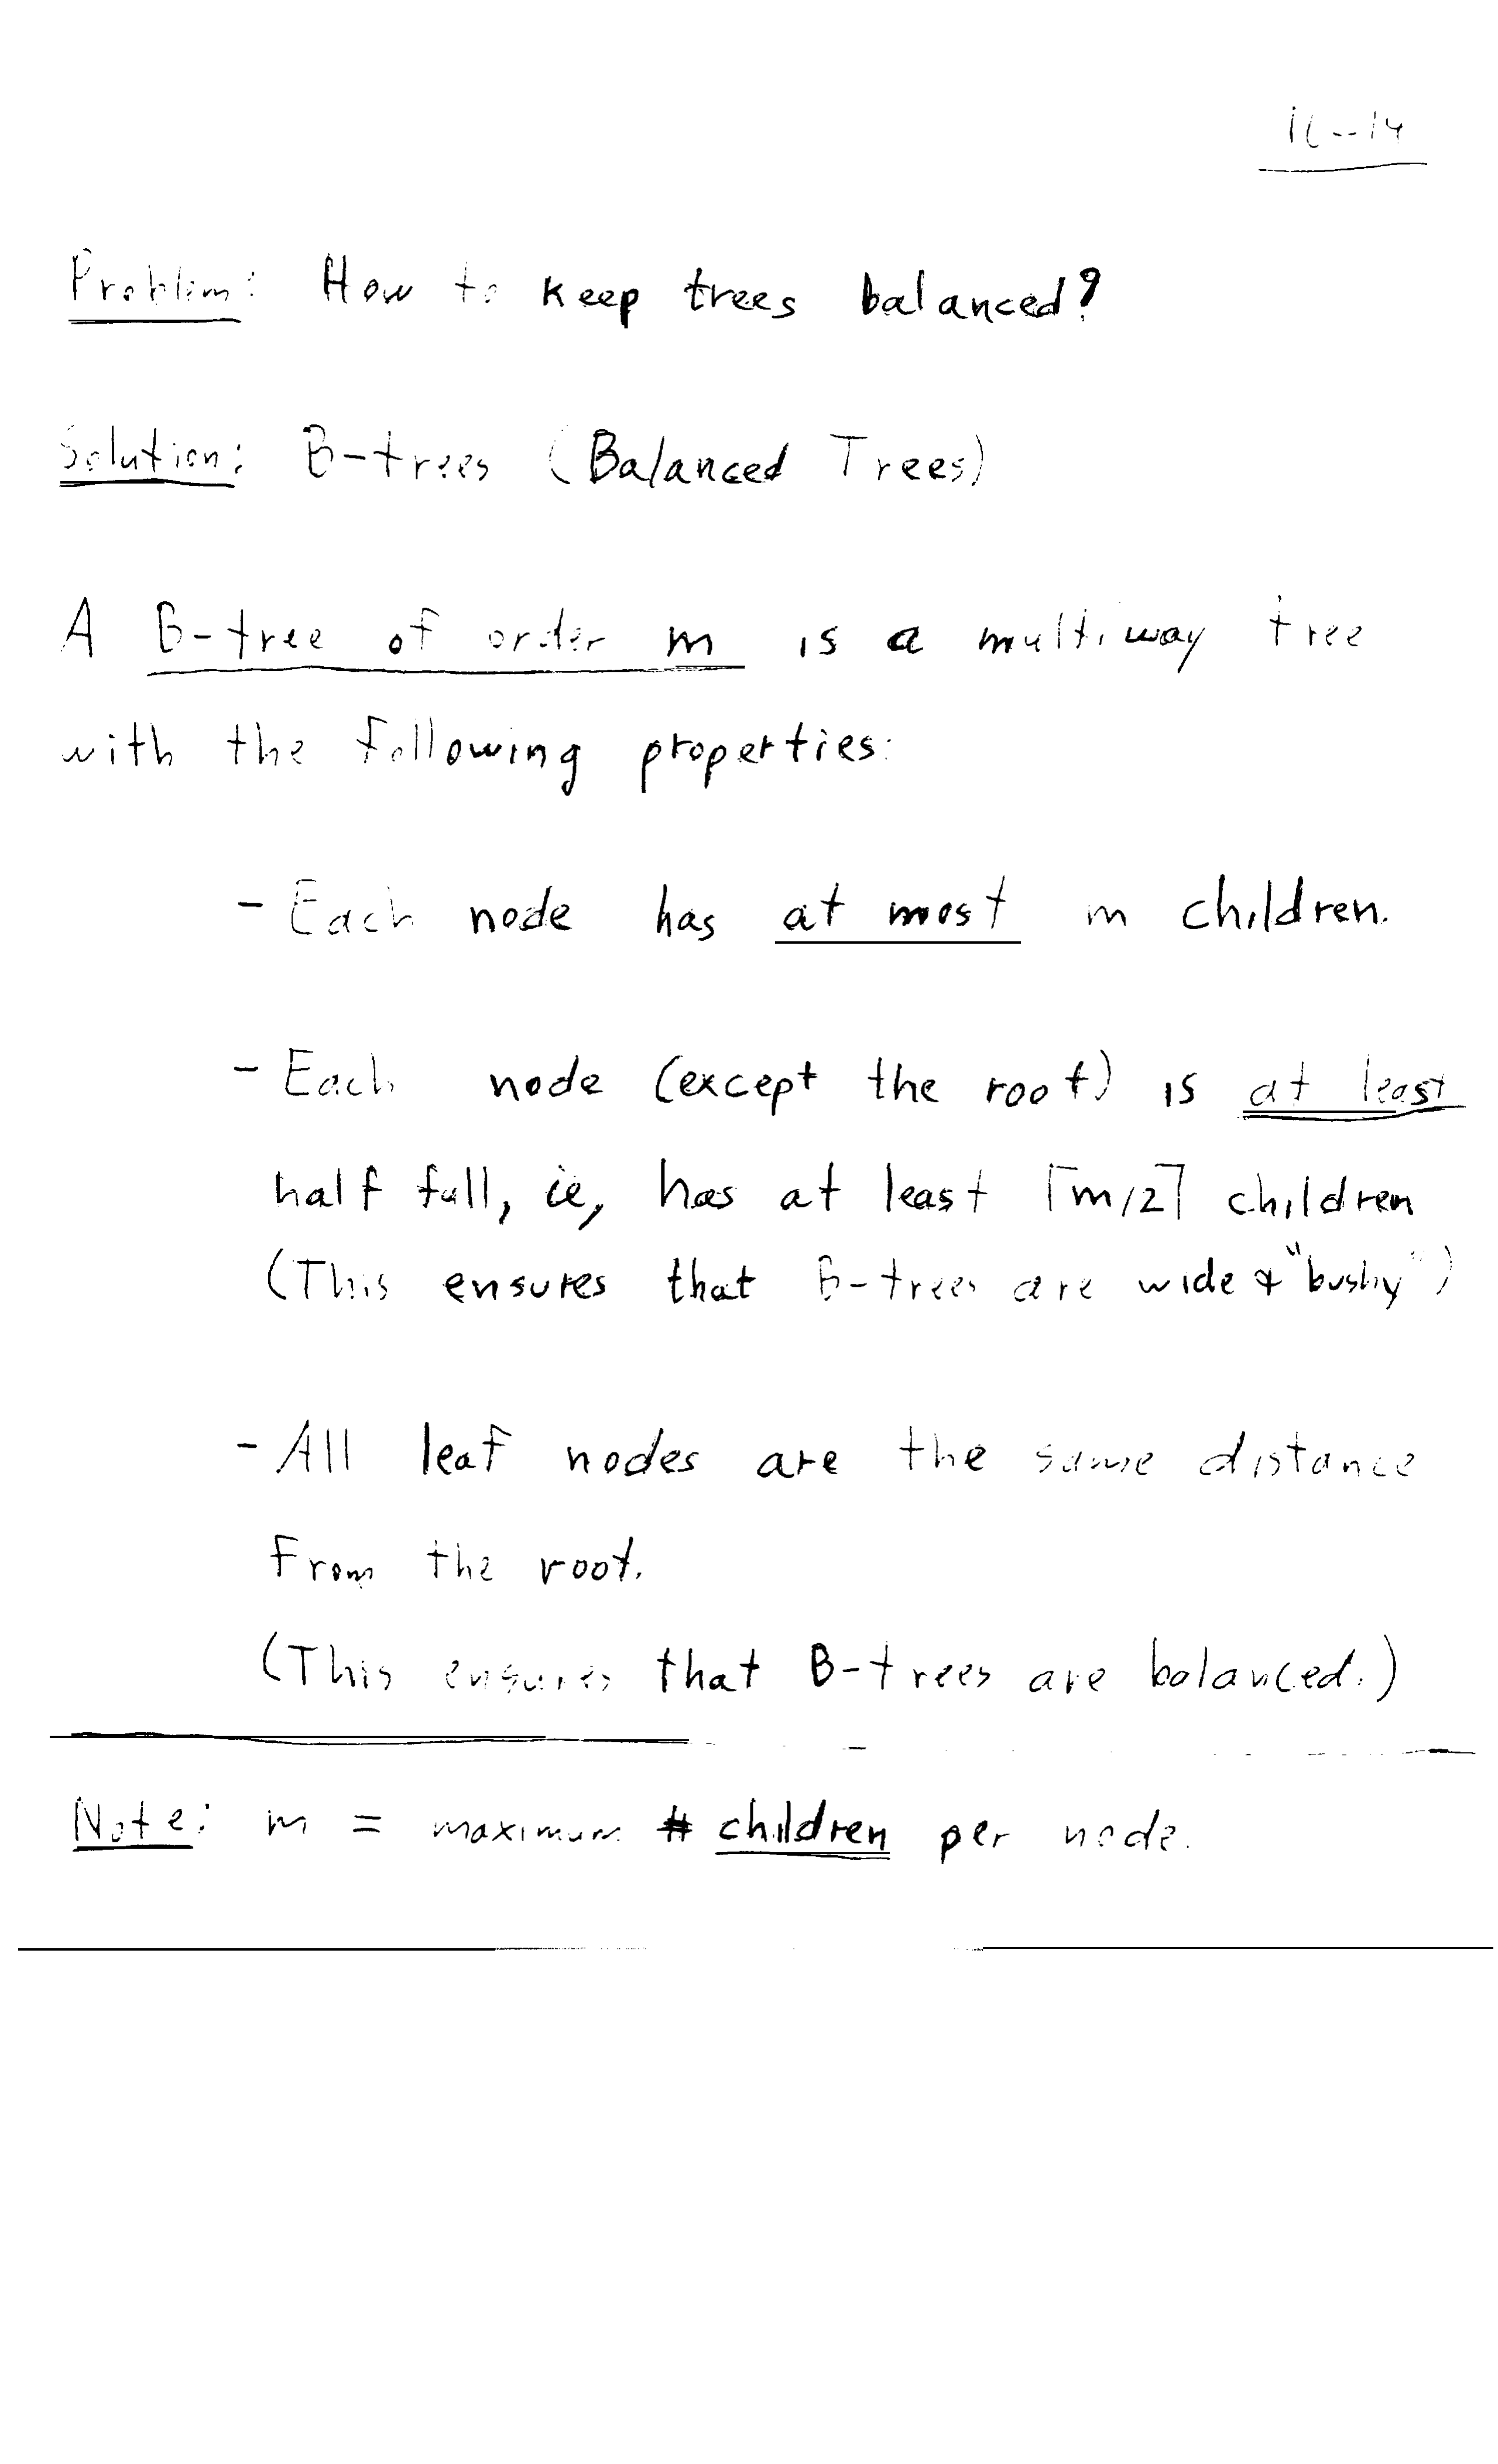 Problem: How to keep trees balanced?
Solution: B-trees (Balanced Trees)
A B-tree of order m is a multiway tree
with the following properties:
- Each node has at most m children.
- Each node (except the root) is at least
half full, ie, has at least ⌈m/2⌉ children
(This ensures that B-trees are wide & "bushy")
- All leaf nodes are the same distance
from the root.
(This ensures that B-trees are balanced.)
Note: m = maximum # children per node.